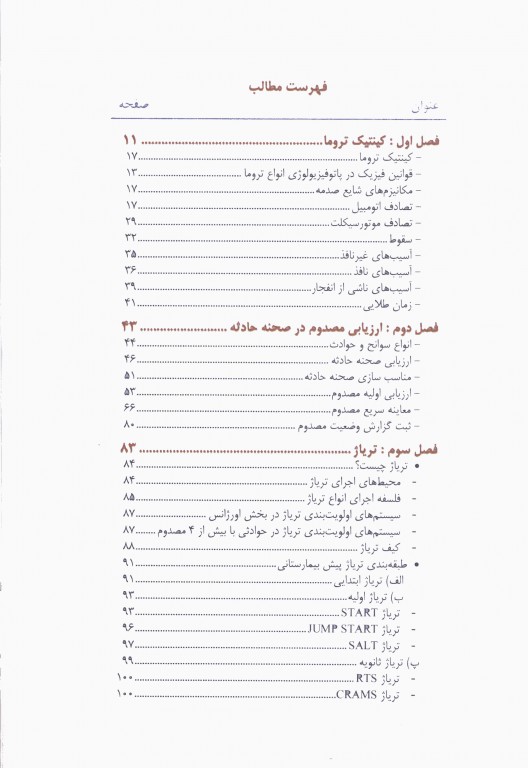 فهرست مطالب
عنوان صفحه
فصل اول : کینتیک تروما ........ ۱۱
- کینتیک تروما ........ ۱۷
- قوانین فیزیک در پاتوفیزیولوژی انواع تروما ........ ۱۳
- مکانیزم‌های شایع صدمه ........ ۱۷
- تصادف اتومبیل ........ ۱۷
- تصادف موتورسیکلت ........ ۲۹
- سقوط ........ ۳۲
- آسیب‌های غیرنافذ ........ ۳۵
- آسیب‌های نافذ ........ ۳۶
- آسیب‌های ناشی از انفجار ........ ۳۹
- زمان طلایی ........ ۴۱
فصل دوم : ارزیابی مصدوم در صحنه حادثه ........ ۴۳
- انواع سوانح و حوادث ........ ۴۴
- ارزیابی صحنه حادثه ........ ۴۶
- مناسب سازی صحنه حادثه ........ ۵۱
- ارزیابی اولیه مصدوم ........ ۵۳
- معاینه سریع مصدوم ........ ۶۶
- ثبت گزارش وضعیت مصدوم ........ ۸۰
فصل سوم : تریاژ ........ ۸۳
• تریاژ چیست؟ ........ ۸۴
- محیط‌های اجرای تریاژ ........ ۸۴
- فلسفه اجرای انواع تریاژ ........ ۸۵
- سیستم‌های اولویت‌بندی تریاژ در بخش اورژانس ........ ۸۷
- سیستم‌های اولویت‌بندی تریاژ در حوادثی با بیش از ۴ مصدوم ........ ۸۷
- کیف تریاژ ........ ۸۸
• طبقه‌بندی تریاژ پیش بیمارستانی ........ ۹۱
الف) تریاژ ابتدایی ........ ۹۱
ب) تریاژ اولیه ........ ۹۳
- تریاژ START ........ ۹۳
- تریاژ JUMP START ........ ۹۶
- تریاژ SALT ........ ۹۷
پ) تریاژ ثانویه ........ ۹۹
- تریاژ RTS ........ ۱۰۰
- تریاژ CRAMS ........ ۱۰۰